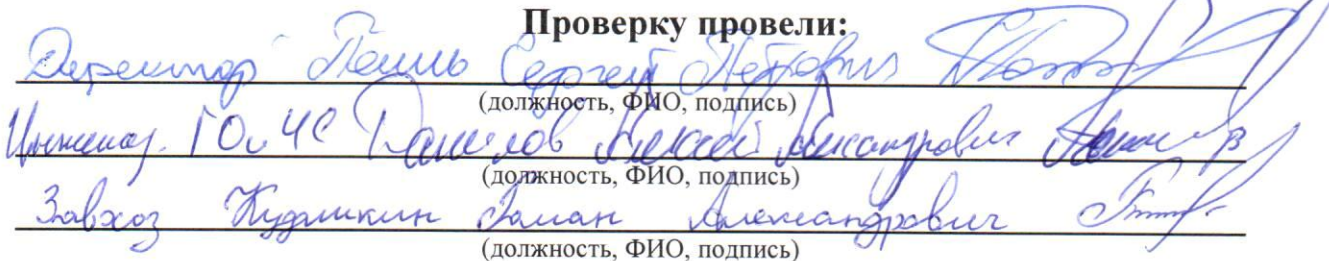 Проверку провели:
Директор Сергей Петрович
(должность, ФИО, подпись)
Инженер ГО и ЧС Данилов Алексей Александрович
(должность, ФИО, подпись)
Завхоз Роман Александрович
(должность, ФИО, подпись)